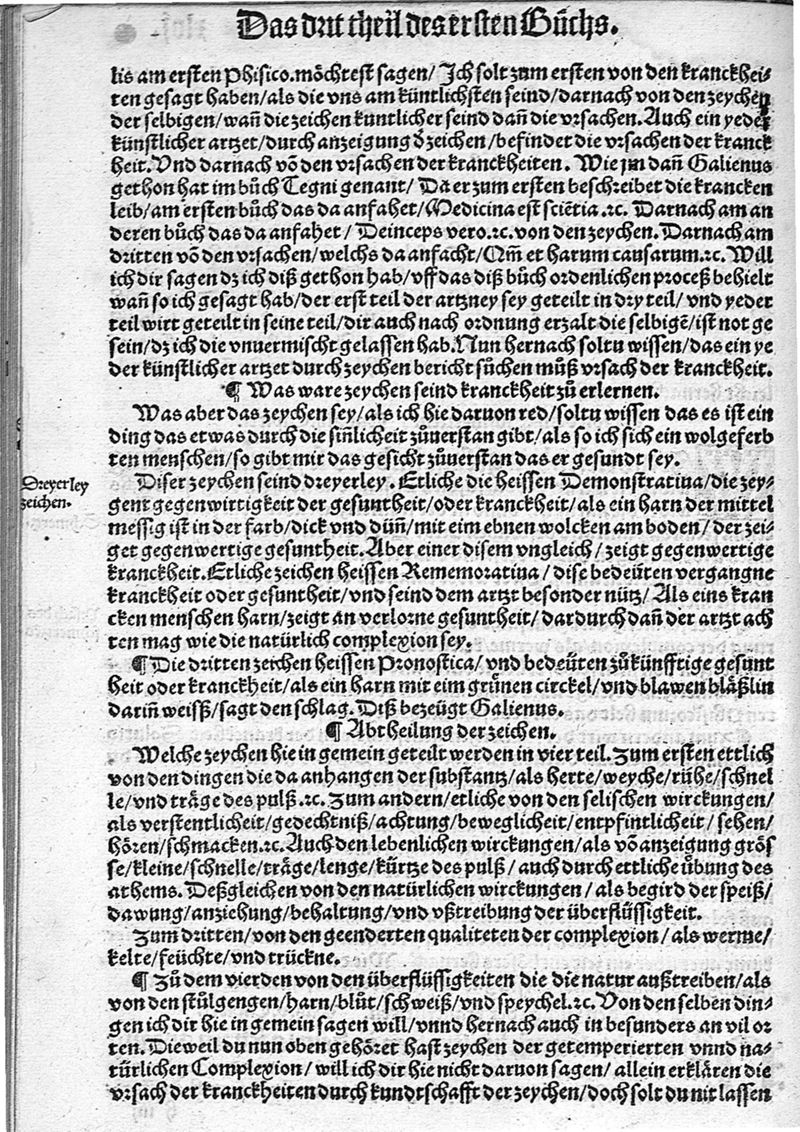 Das drit theil des ersten Bůchs.
lis am ersten Phisico. mőchtest sagen/ Ich solt zum ersten von den kranckhei-
ten gesagt haben/ als die vns am küntlichsten seind/ darnach von den zeychen
der selbigen/ wañ die zeichen kuntlicher seind dañ die vrsachen. Auch ein yeder
künstlicher artzet/ durch anzeigung d̓ zeichen/ befindet die vrsachen der kranck
heit. Vnd darnach võ den vrsachen der kranckheiten. Wie jm dañ Galienus
gethon hat im bůch Tegni genant/ Da er zum ersten beschreibet die krancken
leib/ am ersten bůch das da anfahet/ Medicina est sciẽtia .ꝛc. Darnach am an
deren bůch das da anfahet/ Deinceps vero.ꝛc. von den zeychen. Darnach am
dritten võ den vrsachen/ welchs da anfacht/ Qm̃ et harum causarum.ꝛc. Will
ich dir sagen dz ich diß gethon hab/ vff das diß bůch ordenlichen proceß behielt
wañ so ich gesagt hab/ der erst teil der artzney sey geteilt in dry teil/ vnd yeder
teil wirt geteilt in seine teil/ dir auch nach ordnung erzalt die selbigẽ/ ist not ge
sein/ dz ich die vnuermischt gelassen hab. Nun hernach soltu wissen/ das ein ye
der künstlicher artzet durch zeychen bericht sůchen můß vrsach der kranckheit.
¶ Was ware zeychen seind kranckheit zů erlernen.
Was aber das zeychen sey/ als ich hie daruon red/ soltu wissen das es ist ein
ding das etwas durch die siñlicheit zůuerstan gibt/ als so ich sich ein wolgeferb
ten menschen/ so gibt mir das gesicht zůuerstan das er gesundt sey.
Dreyerley
zeichen.
Diser zeychen seind dreyerley. Etliche die heissen Demonstratiua/ die zey-
gent gegenwirtigkeit der gesuntheit/ oder kranckheit/ als ein harn der mittel
messig ist in der farb/ dick vnd düñ/ mit eim ebnen wolcken am boden/ der zei-
get gegenwertige gesuntheit. Aber einer disem vngleich/ zeigt gegenwertige
kranckheit. Etliche zeichen heissen Rememoratiua/ dise bedeüten vergangne
kranckheit oder gesuntheit/ vnd seind dem artzt besonder nütz/ Als eins kran
cken menschen harn/ zeigt an verlorne gesuntheit/ dardurch dañ der artzt ach
ten mag wie die natürlich complexion sey.
¶ Die dritten zeichen heissen Pronostica/ vnd bedeüten zůkünfftige gesunt
heit oder kranckheit/ als ein harn mit eim grünen circkel/ vnd blawen bläßlin
dariñ weisß/ sagt den schlag. Diß bezeügt Galienus.
¶ Abtheilung der zeichen.
Welche zeychen hie in gemein geteilt werden in vier teil. Zum ersten ettlich
von den dingen die da anhangen der substantz/ als herte/ weyche/ rühe/ schnel
le/ vnd träge des pulß .ꝛc. Zum andern/ etliche von den selischen wirckungen/
als verstentlicheit/ gedechtniß/ achtung/ beweglicheit/ entpfintlicheit/ sehen/
hören/ schmacken.ꝛc. Auch den lebenlichen wirckungen/ als võ anzeigung grős
se/ kleine/ schnelle/ träge/ lenge/ kürtze des pulß/ auch durch ettliche übung des
athems. Deßgleichen von den natürlichen wirckungen/ als begird der speiß/
dawung/ anziehung/ behaltung/ vnd vßtreibung der überflüssigkeit.
Zum dritten/ von den geenderten qualiteten der complexion/ als werme/
kelte/ feüchte/ vnd trückne.
¶ Zů dem vierden von den überflüssigkeiten die die natur außtreiben/ als
von den stůlgengen/ harn/ blůt/ schweiß/ vnd speychel.ꝛc. Von den selben din-
gen ich dir hie in gemein sagen will/ vnnd hernach auch in besunders an vil or
ten. Dieweil du nun oben gehőret hast zeychen der getemperierten vnnd na-
türlichen Complexion/ will ich dir hie nicht daruon sagen/ allein erklären die
vrsach der kranckheiten durch kundtschafft der zeychen/ doch solt du nit lassen